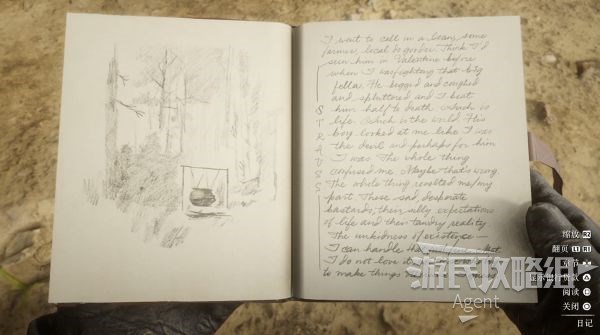 I went to call in a loan, some
farmer, local do gooder. Think I'd
seen him in Valentine before
when I was fighting that big
fella. He begged and coughed
and spluttered and I beat
him half to death. Such is
life. Such is the world. His
boy looked at me like I was
the devil and perhaps for him
I was. The whole thing
confused me. Maybe that's wrong.
The whole thing revolted me/my
part. These sad, desperate
bastards, their silly expectations
of life and their tawdry reality
The unkindness of existence —
I can handle
I do not love
to make things
STRAUSS
游民攻略组
Agent
缩放 R2
翻页 L1 R1
阅读
关闭
日记